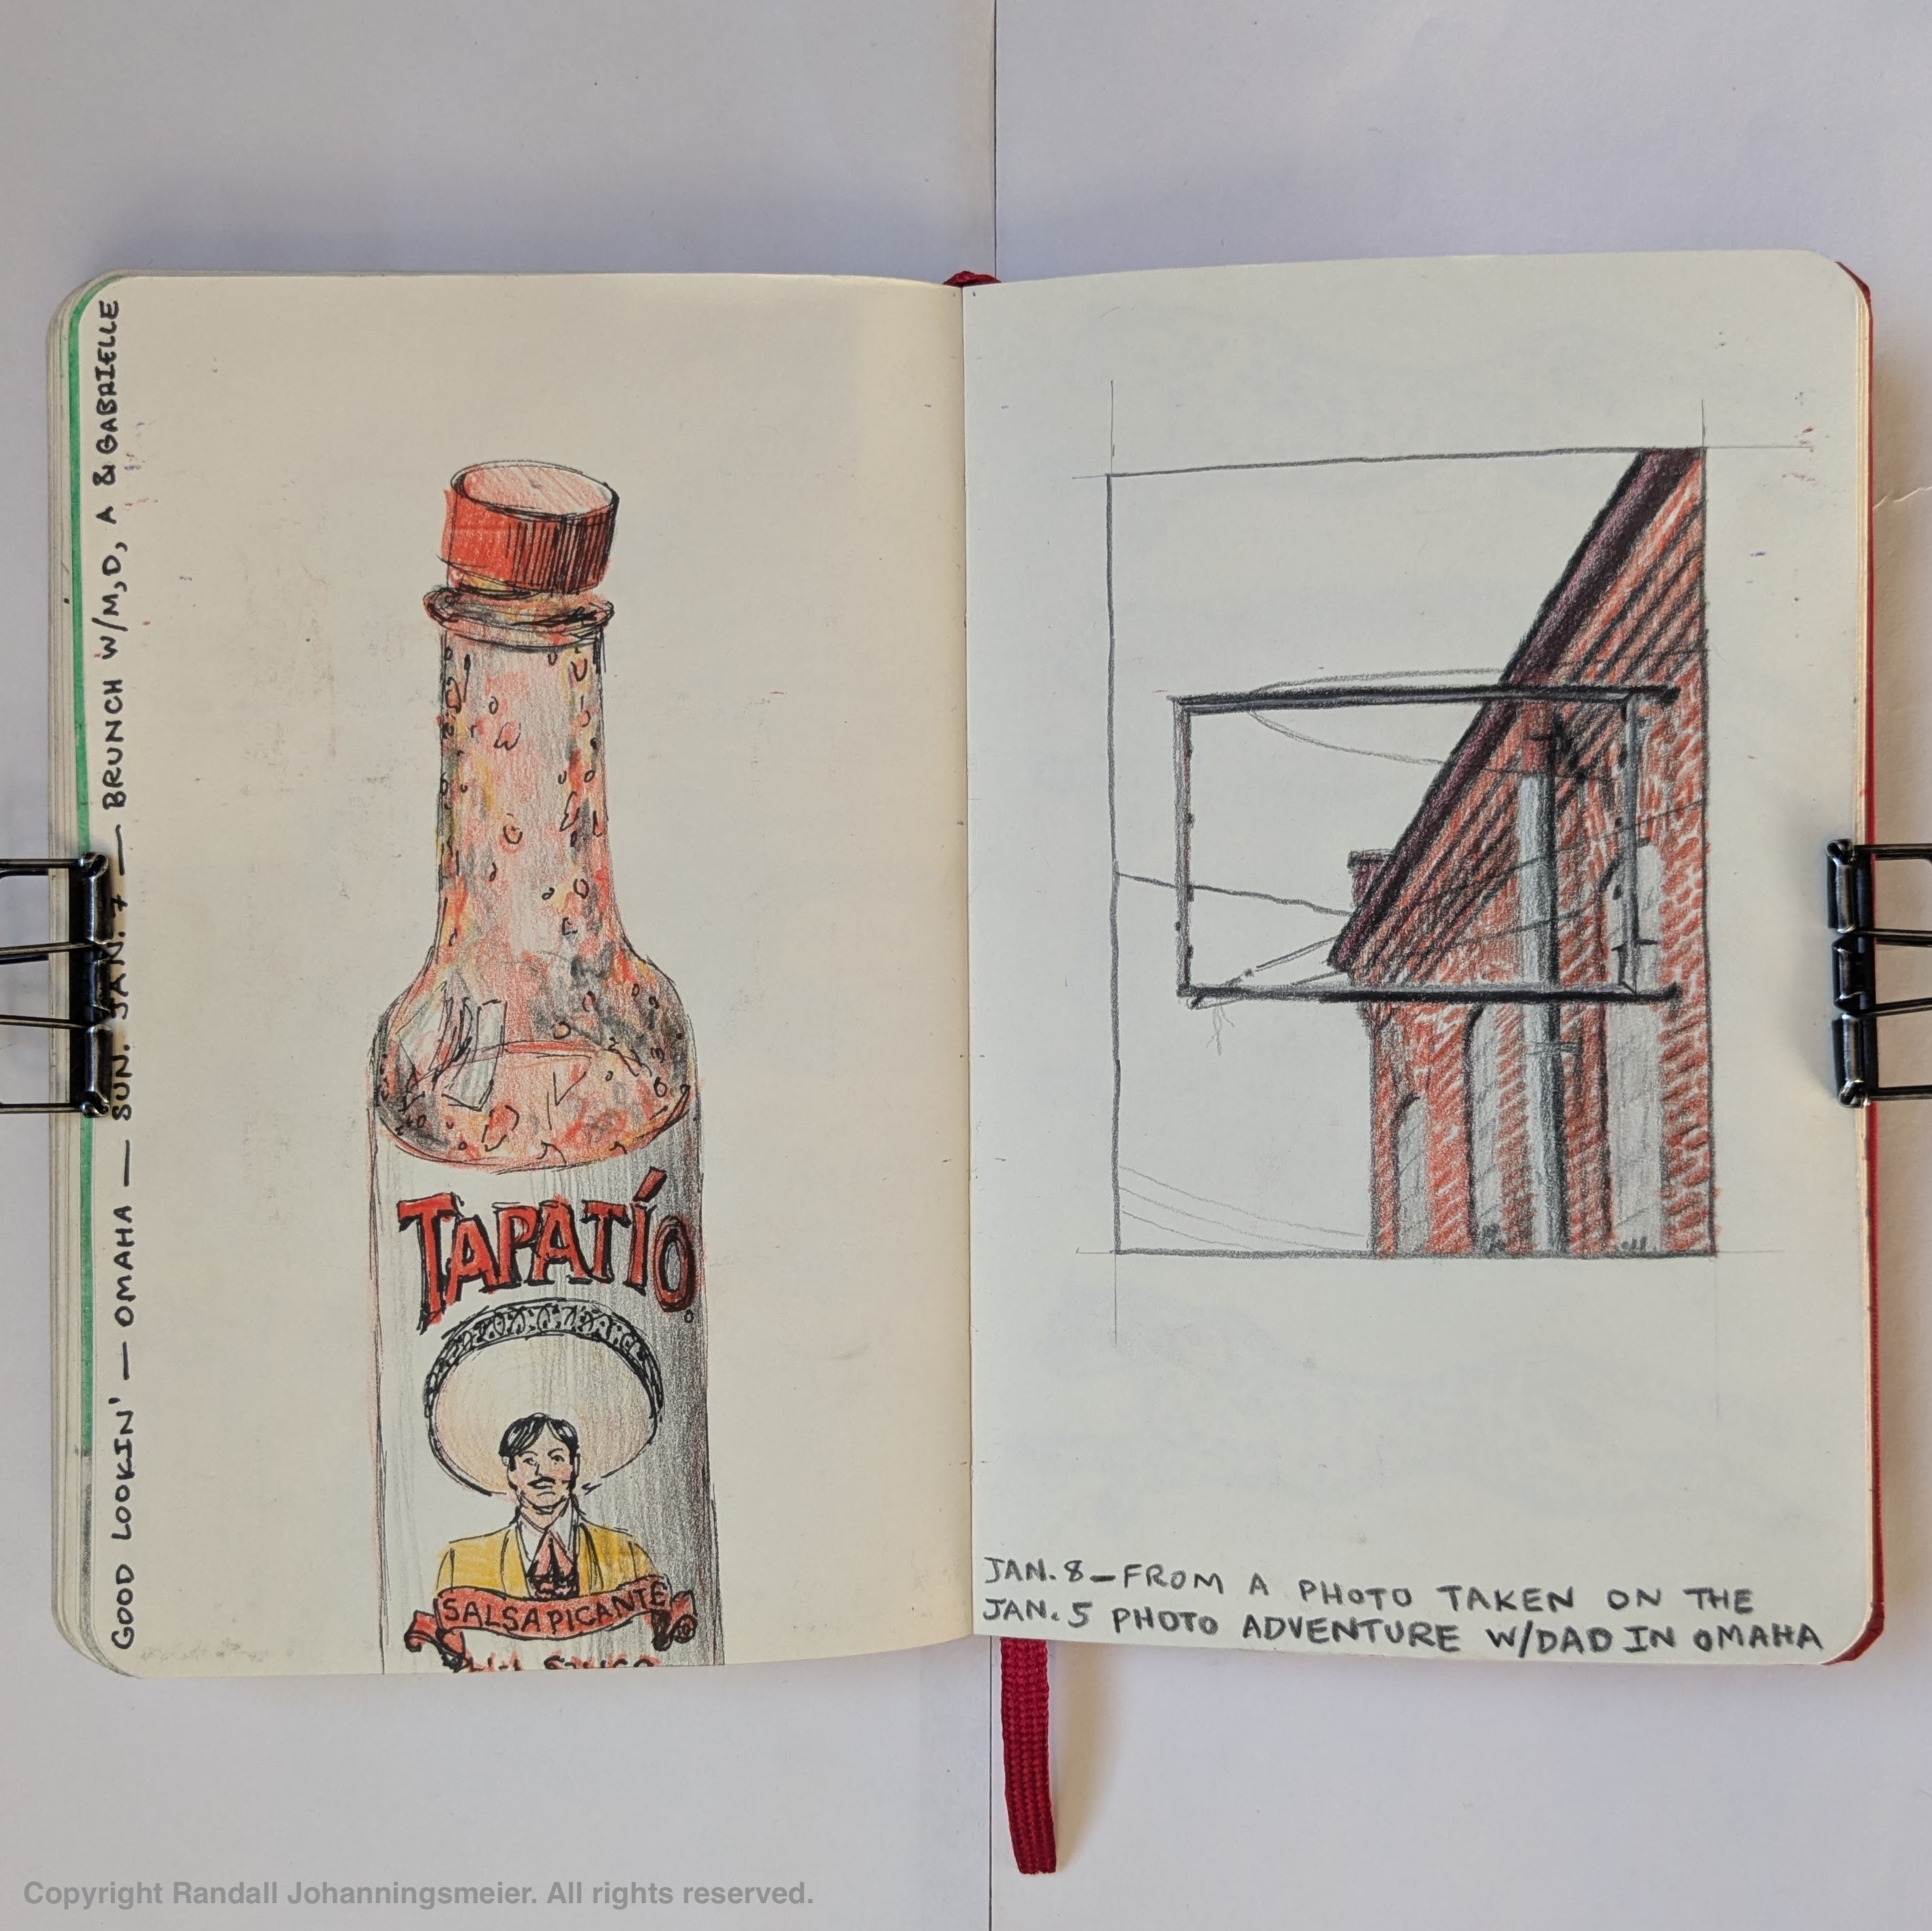 GOOD LOOKIN' — OMAHA — SUN. JAN. 7 — BRUNCH W/M,D, A & GABRIELLE
TAPATÍO
SALSA PICANTE
JAN. 8—FROM A PHOTO TAKEN ON THE
JAN. 5 PHOTO ADVENTURE W/DAD IN OMAHA
Copyright Randall Johanningsmeier. All rights reserved.